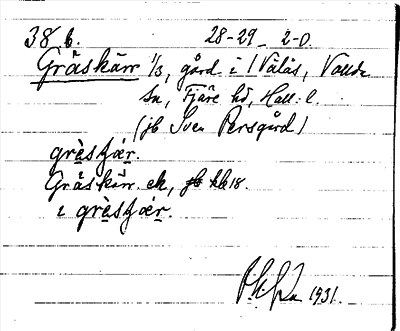 38 b. 28-29 2-0.
Gråskärr 1/3, gård i / Välås, Vallda
sn, Fjäre hd, Hall. l.
(jb Sven Persgård)
grèskær.
Gråskärr ek, jb kbl 18.
i grèskær.
1931.